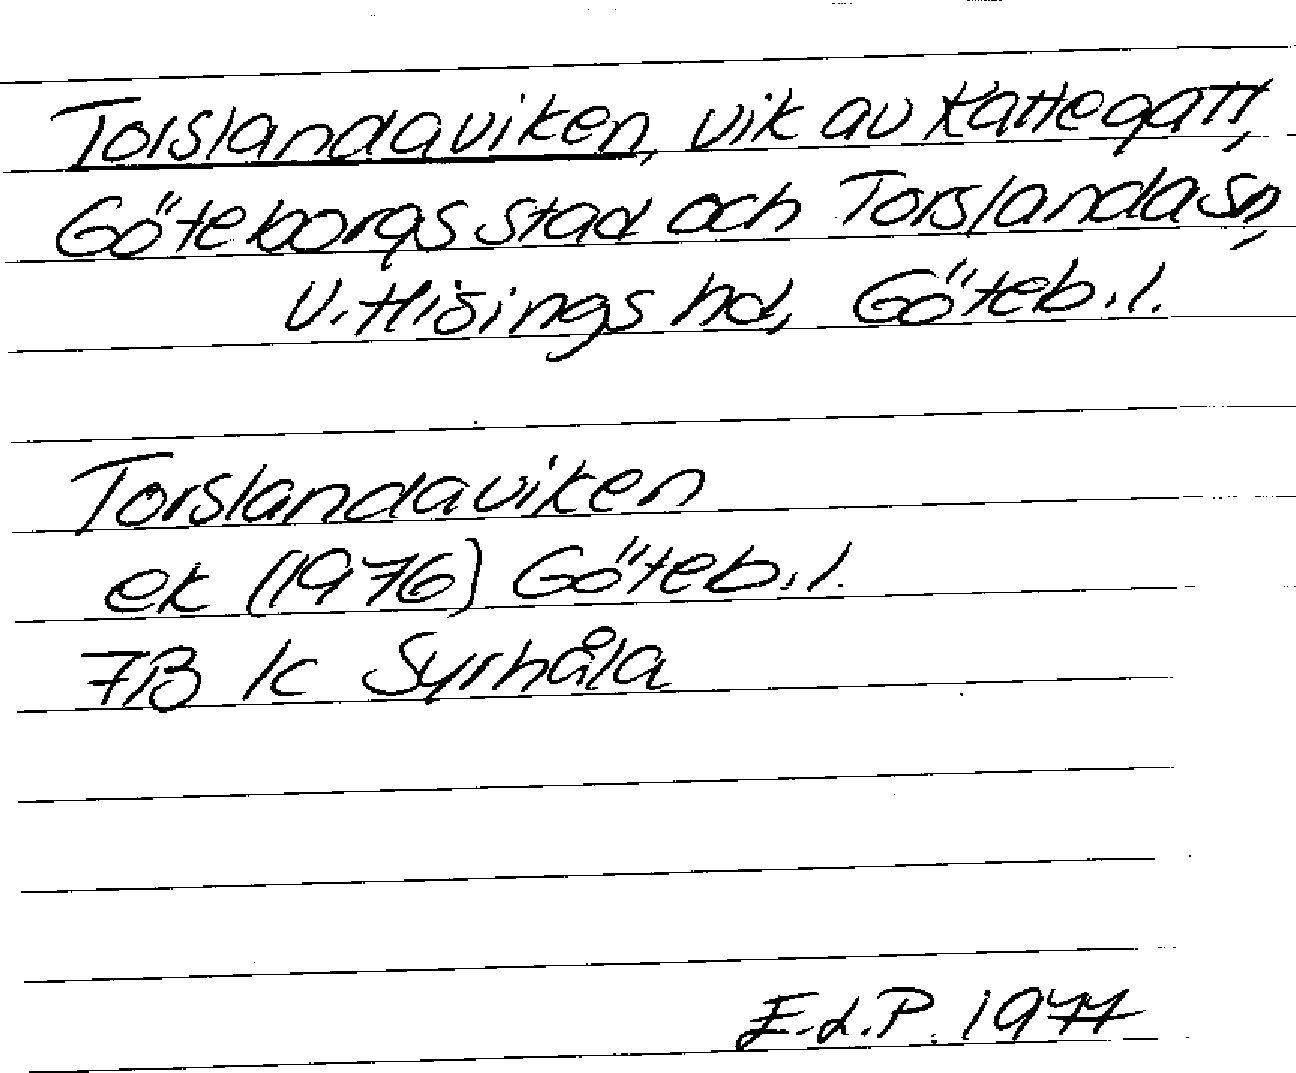 Torslandaviken, vik av Kattegatt,
Göteborgs stad och Torslanda sn,
V. Hisings hd, Göteb. l.
Torslandaviken
ek (1976) Göteb. l.
7B 1c Syrhåla
E.d.P. 1977